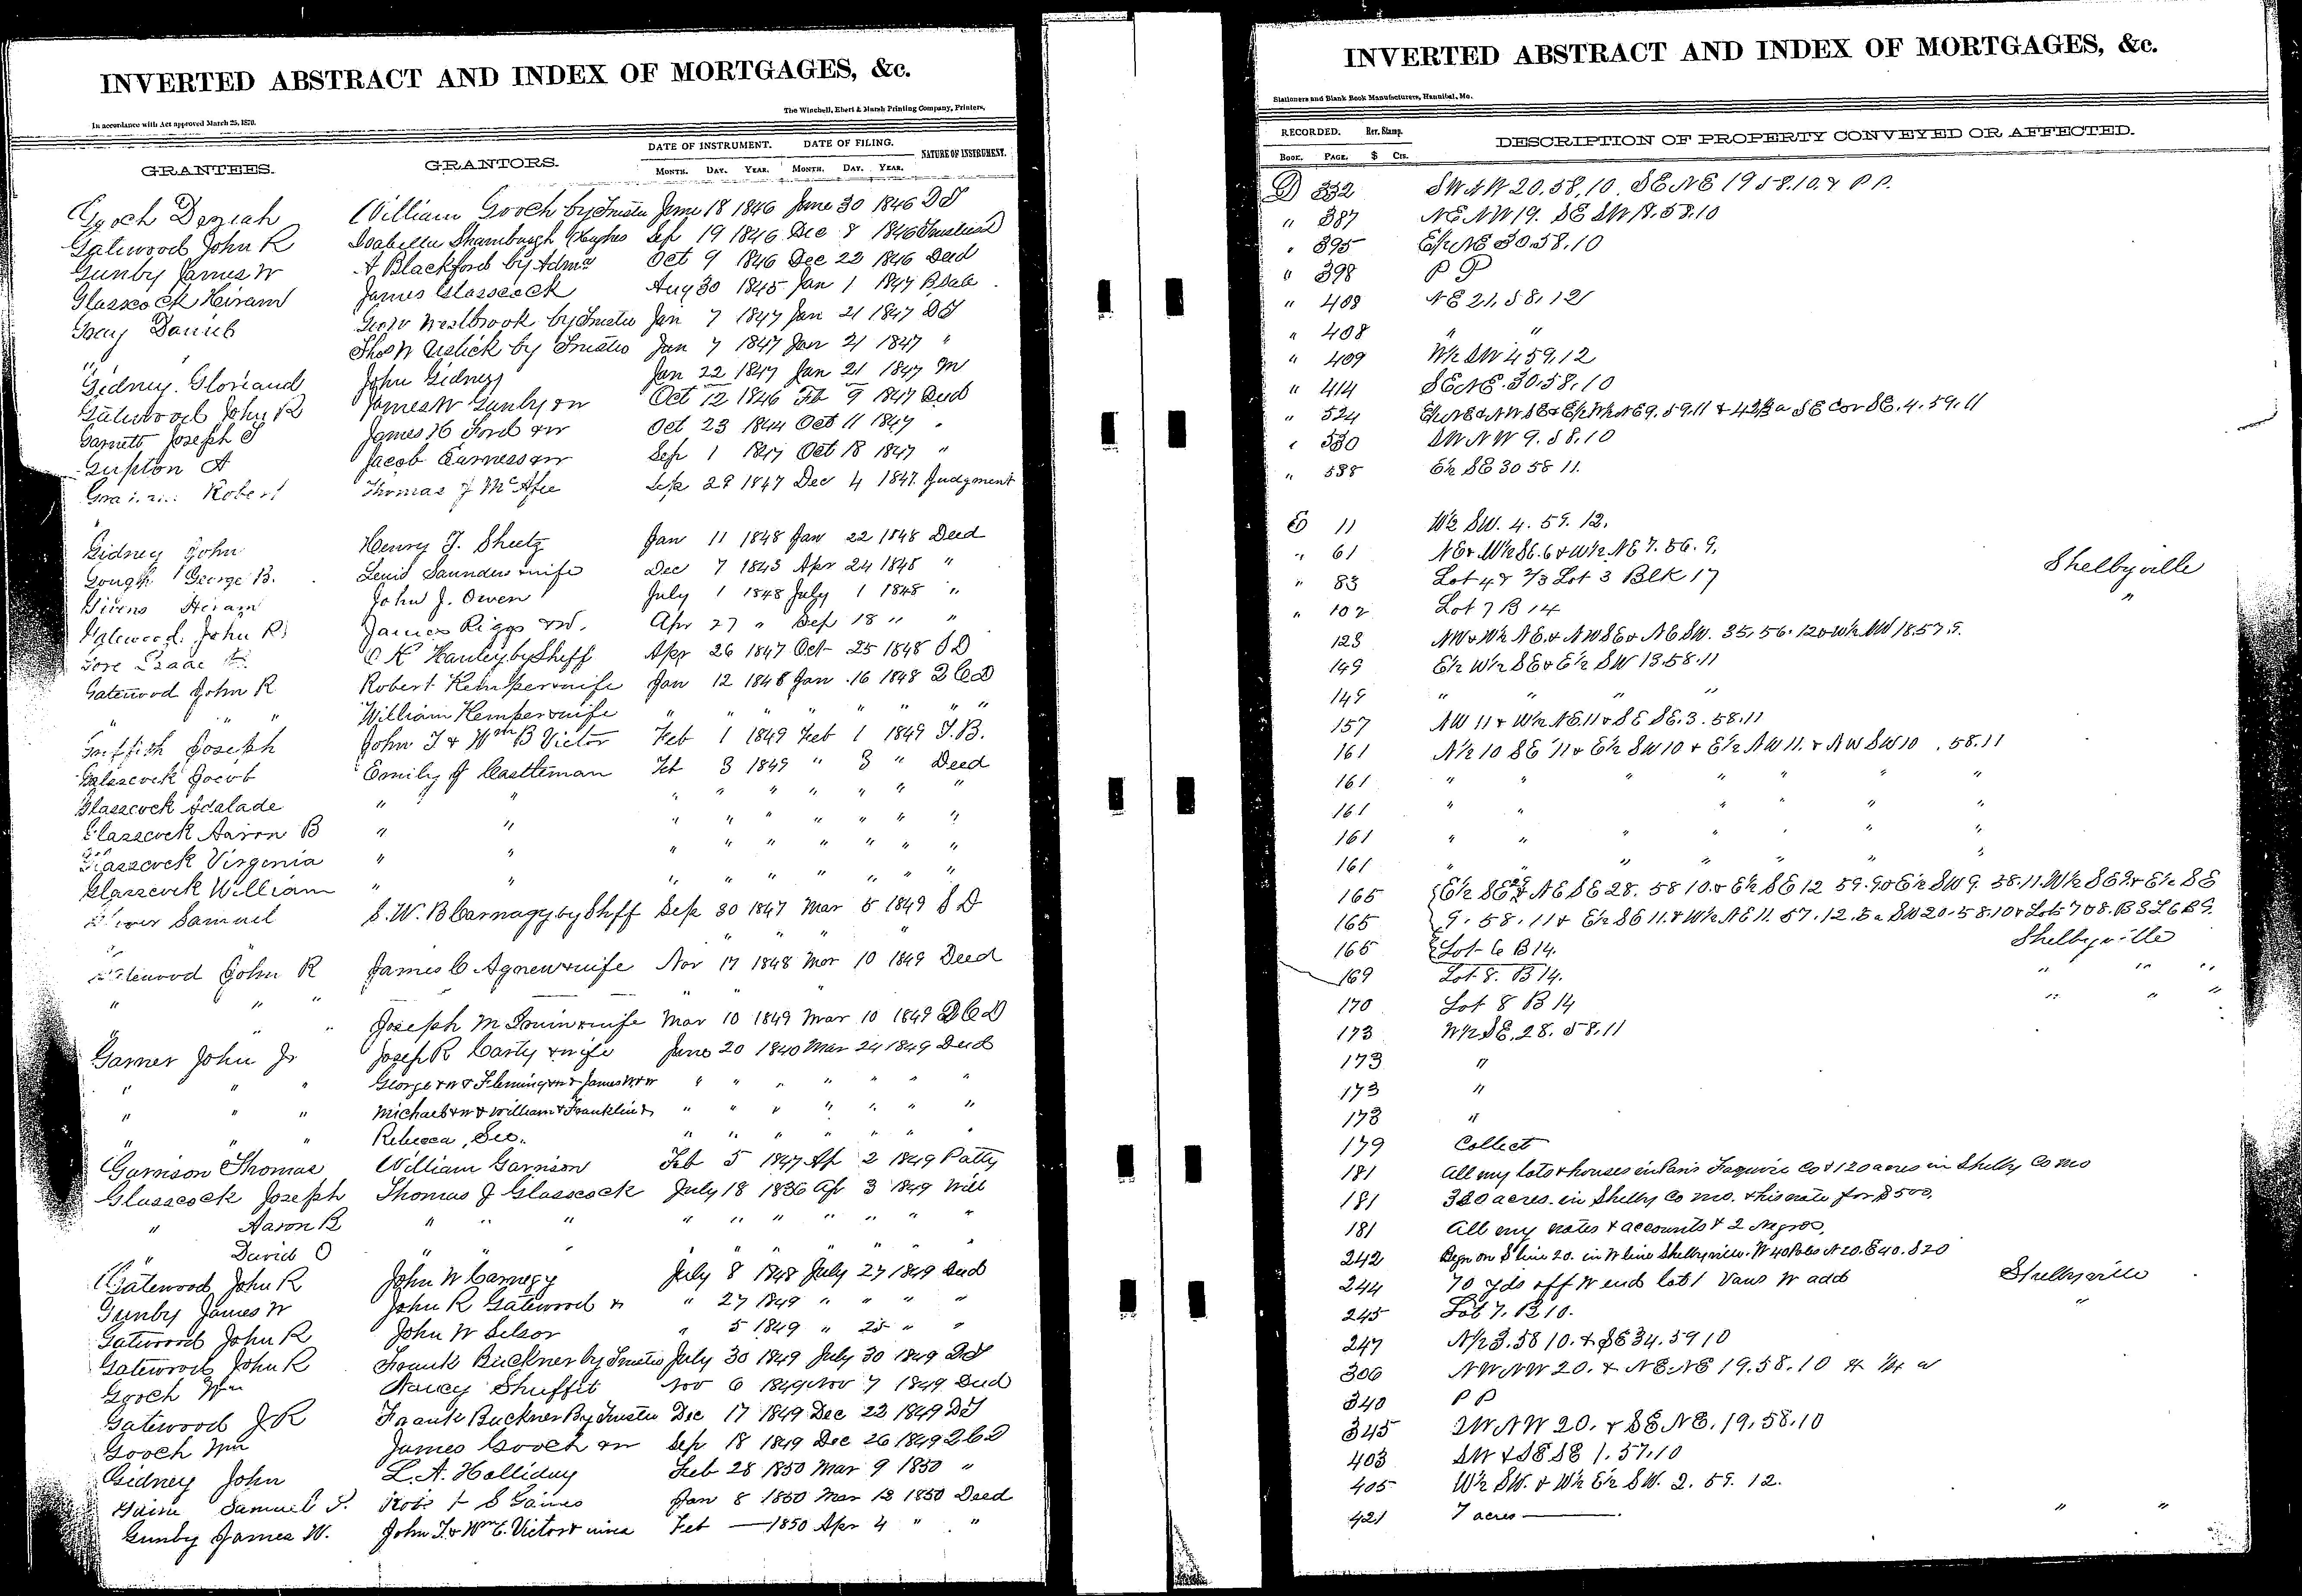 INVERTED ABSTRACT AND INDEX OF MORTGAGES, &c.
The Winchell, Ebert & Marsh Printing Company, Printers,
In accordance with Act approved March 25, 1870.
GRANTEES. GRANTORS. DATE OF INSTRUMENT. DATE OF FILING. NATURE OF INSTRUMENT.
MONTH. DAY. YEAR. MONTH. DAY. YEAR.
Gooch Deziah William Gooch by Trustee June 18 1846 June 30 1846 DT
Gatewood John R Isabella Shambaugh Hughes Sep 19 1846 Dec 8 1846
Gunby James W A Blackford by Admr Oct 9 1846 Dec 22 1846 Deed
Glasscock Hiram James Glasscock Aug 30 1845 Jan 1 1847 B Sale
Gay Daniel Geo W Westbrook by Trustee Jan 7 1847 Jan 21 1847 DT
" Thos W by Trustee Jan 7 1847 Jan 21 1847 "
Gidney Gloriand John Gidney Jan 22 1847 Jan 21 1847 M
Gatewood John R James W Gunby & w Oct 12 1846 Feb 9 1847 Deed
Garnett Joseph S James H Ford & w Oct 23 1844 Oct 11 1847 "
Gupton A Jacob Earness & w Sep 1 1847 Oct 18 1847 "
Robert Thomas J McAfee Sep 29 1847 Dec 4 1847 Judgment
Gidney John Henry J. Sheetz Jan 11 1848 Jan 22 1848 Deed
Gough George B. Lewis Saunders & wife Dec 7 1843 Apr 24 1848 "
Givens Hiram John J. Owen July 1 1848 July 1 1848 "
Gatewood John R James Riggs & W. Apr 27 " Sep 18 " "
Gore Isaac C K Hanley by Sheff Apr 26 1847 Oct 25 1848 S D
Gatewood John R Robert Kemper & wife Jan 12 1848 Jan 16 1848 2 C D
" " William Kemper & wife " " " " " "
Griffith Joseph John T & Wm B Victor Feb 1 1849 Feb 1 1849 T.B.
Glasscock Jacob Emily J Castleman Feb 3 1849 " 3 " Deed
Glasscock Adalade " " " " " " " " "
Glasscock Aaron B " " " " " " " " "
Glasscock Virginia " " " " " " " " "
Glasscock William " " " " " " " " "
Samuel S. W. B Carnagy by Shff Sep 30 1847 Mar 5 1849 S D
Gatewood John R James C Agnew & wife Nov 17 1848 Mar 10 1849 Deed
" " " Joseph M Irwin & wife Mar 10 1849 Mar 10 1849 2 C D
Garner John Jr Joseph R Carty & wife June 20 1840 Mar 24 1849 Deed
" " " George & w & Fleming & w & James W & w " " " " " " "
" " " Michael & w & William & Franklin & " " " " " " "
" " " Rebecca, Geo. " " " " " " "
Garrison Thomas William Garrison Feb 5 1847 Ap 2 1849 P atty
Glasscock Joseph Thomas J Glasscock July 18 1836 Ap 3 1849 Will
" Aaron B " " " " " " " " " "
" David O " " " " " " " " " "
Gatewood John R John W Carnegy July 8 1848 July 27 1849 Deed
Gunby James W John R Gatewood & " 27 1849 " " " "
Gatewood John R John W Selsor " 5 1849 " 25 " "
Gatewood John R Frank Buckner by Trustee July 30 1849 July 30 1849 DT
Gooch Wm Nancy Shuffit Nov 6 1849 Nov 7 1849 Deed
Gatewood J R Frank Buckner By Trustee Dec 17 1849 Dec 22 1849 DT
Gooch Wm James Gooch & w Sep 18 1849 Dec 26 1849 2 C D
Gidney John L. A. Holliday Feb 28 1850 Mar 9 1850 "
Samuel S. Robt & S Gaines Jan 8 1850 Mar 12 1850 Deed
Gunby James W. John T. & Wm C. Victor & Feb — 1850 Apr 4 " "
INVERTED ABSTRACT AND INDEX OF MORTGAGES, &c.
Stationers and Blank Book Manufacturers, Hannibal, Mo.
RECORDED. Rev. Stamp. DESCRIPTION OF PROPERTY CONVEYED OR AFFECTED.
BOOK. PAGE. $ CTS.
D 332 SW NW 20.58.10 SE NE 19 58.10. & P P.
" 387 NE NW 19. SE SW 18.58.10
" 395 E½ NE 30.58.10
" 398 P P
" 408 NE 21.58.12
" 408 " "
" 409 W½ SW 4 59.12
" 414 SE NE. 30.58.10
" 524 E½ NE & NW SE & E½ W½ NE 9.59.11 & 42 a SE Cor SE. 4. 59. 11
" 530 SW NW 9.58.10
" 538 E½ SE 30 58 11.
E 11 W½ SW. 4. 59. 12.
" 61 NE & W½ SE. 6 & W½ NE 7. 56. 9.
" 83 Lot 4 & ⅔ Lot 3 Blk 17 Shelbyville
" 102 Lot 7 B 14 "
123 NW & W½ NE. & NW SE & NE SW. 35. 56. 12 & W½ NW 18.57.9.
149 E½ W½ SE & E½ SW 13.58.11
149 " " " "
157 NW 11 & W½ NE. 11 & SE SE. 3. 58. 11
161 N½ 10 SE 11 & E½ SW 10 & E½ NW 11. & NW SW 10 . 58.11
161 " " " " " "
161 " " " " " "
161 " " " " " "
161 " " " " " "
165 E½ SE & NE SE 28. 58 10. & E½ SE 12 59. 9 & E½ SW 9. 58.11. W½ SE 9 & E½ SE
165 9. 58. 11 & E½ SE 11. & W½ NE 11. 57. 12. 5 a SW 20. 58. 10 & Lots 7 & 8. B 3 L 6 B 9.
165 Lot 6 B 14. Shelbyville
169 Lot 8. B 14. " " "
170 Lot 8 B 14 " " "
173 W½ SE. 28. 58.11
173 "
173 "
173 "
179 Collect
181 All my lots & houses in Paris Faquire Co & 120 acres in Shelby Co Mo
181 320 acres. in Shelby Co Mo. & his note for $500.
181 All my notes & accounts & 2 Negros,
242 Begn on S line 20. in W line Shelbyville. W 40 Poles N 20. E 40. S 20
244 70 yds off W end lot 1 Vans W add Shelbyville
245 Lot 7. B 10. "
247 N½ 3. 58 10. & SE 34. 59 10
306 NW NW 20. & NE NE 19. 58. 10
340 P P
345 SW NW 20. & SE NE. 19. 58.10
403 SW & SE SE 1. 57.10
405 W½ SW. & W½ E½ SW. 2. 59. 12.
421 7 acres — " "